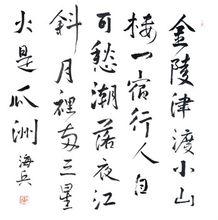 金陵津渡小山
楼一宿行人自
可愁潮落夜江
斜月裡两三星
火是瓜洲
海兵